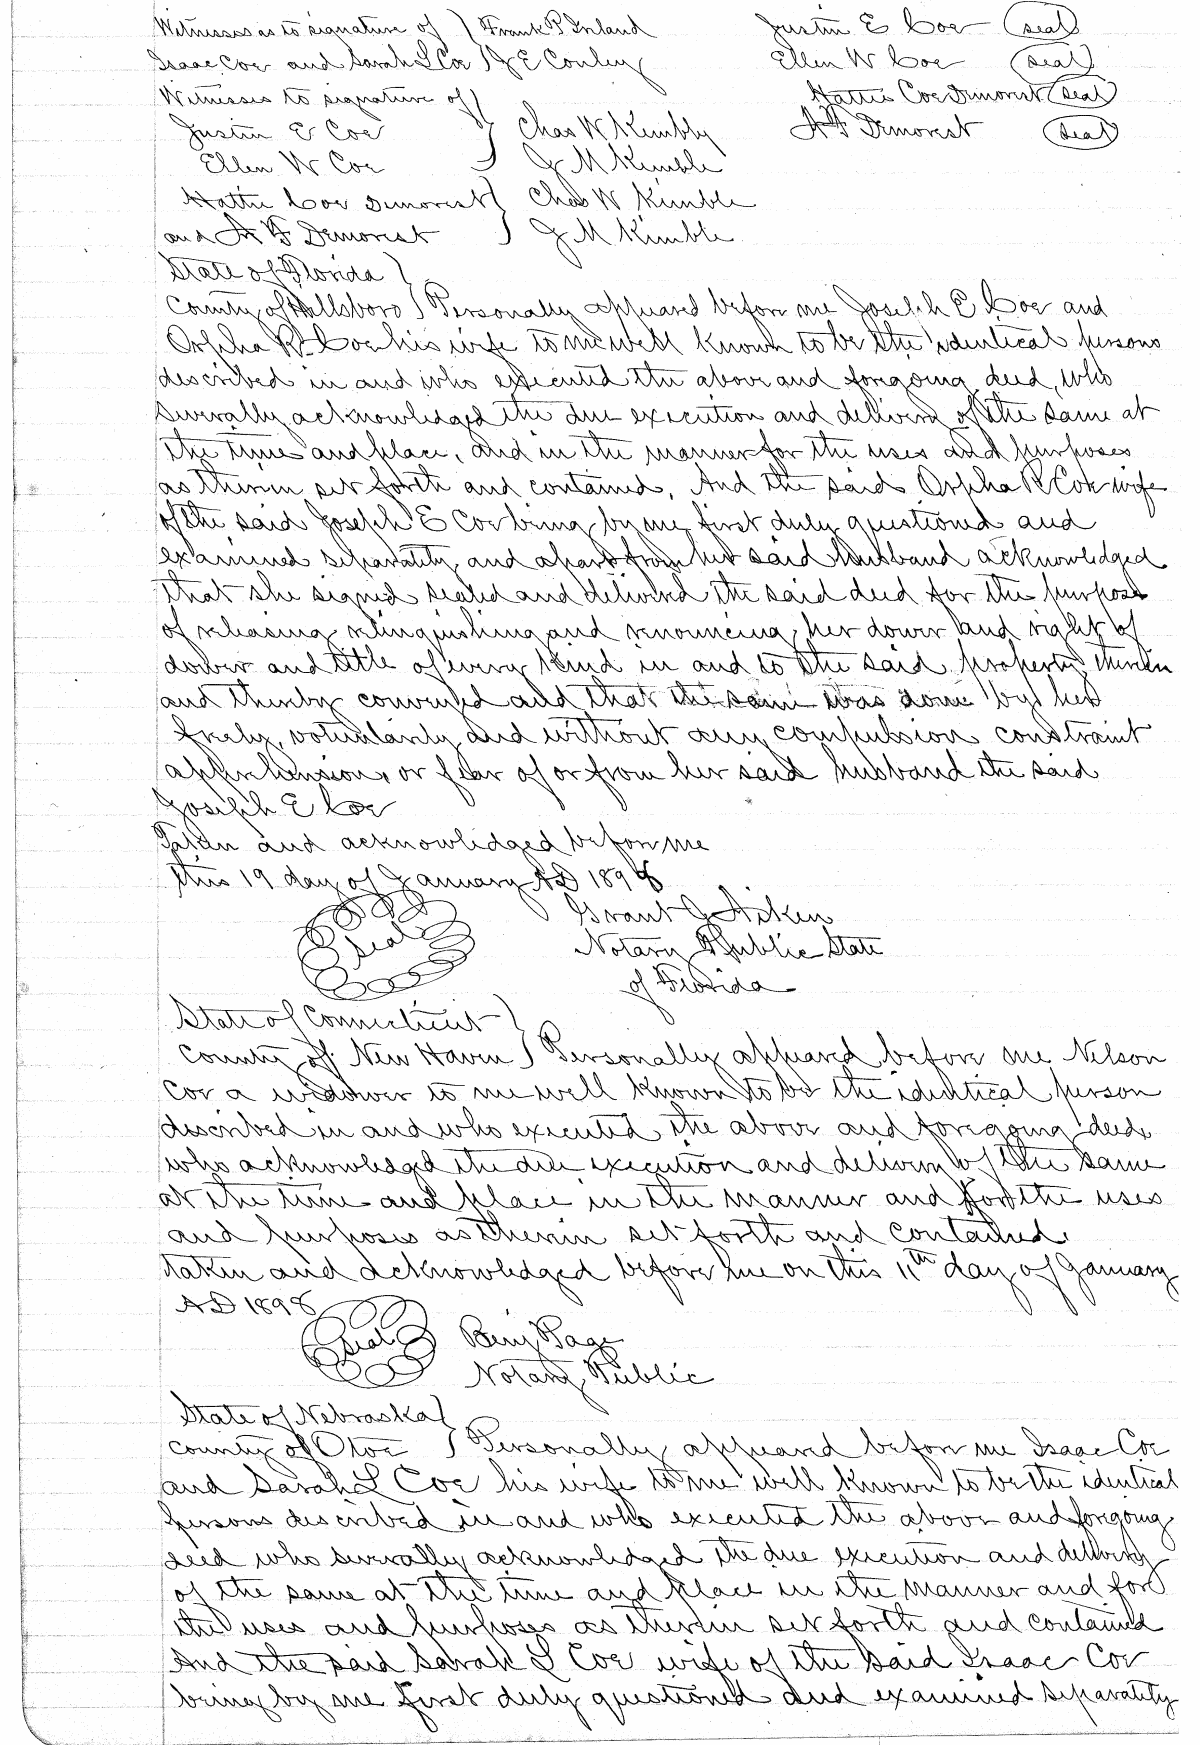 Witnesses as to signature of } Frank P Ireland Justin E Coe (seal)
Isaac Coe and Sarah L Coe } J E Conley Ellen W Coe (seal)
Witnesses to signature of } Hattie Coe Demorest (seal)
Justin E Coe } Chas W Kimbly A F Demorest (seal)
Ellen W Coe } J M Kimble
Hattie Coe Demorest } Chas W Kimble
and A F Demorest } J M Kimble
State of Florida }
County of Hillsboro } Personally appeared before me Joseph E Coe and
Orpha R Coe his wife to me well known to be the identical persons
described in and who executed the above and forgoing deed, who
severally acknowledged the due execution and delivery of the same at
the time and place, and in the manner for the uses and purposes
as therein set forth and contained, And the said Orpha R Coe wife
of the said Joseph E Coe being by me first duly questioned and
examined separately and apart from her said husband acknowledged
that she signed sealed and delivered the said deed for the purpose
of releasing relinquishing and renouncing her dower and right of
dower and title of every kind in and to the said property therein
and thereby conveyed and that the same was done by her
freely, voluntarily and without any compulsion constraint
apprehension, or fear of or from her said husband the said
Joseph E Coe
Taken and acknowledged before me
this 19 day of January AD 1898
Seal Grant J Aiken
Notary Public State
of Florida
State of Connecticut }
County of New Haven } Personally appeared before me Nelson
Coe a widower to me well known to be the identical person
described in and who executed the above and foregoing deed,
who acknowledged the due execution and delivery of the same
at the time and place in the manner and for the uses
and purposes as therein set forth and contained
taken and acknowledged before me on this 11th day of January
AD 1898
Seal Benj Page
Notary Public
State of Nebraska }
County of Otoe } Personally appeared before me Isaac Coe
and Sarah L Coe his wife to me well known to be the identical
persons described in and who executed the above and forgoing
deed who severally acknowledged the due execution and delivery
of the same at the time and place in the manner and for
the uses and purposes as therein set forth and contained
And the said Sarah L Coe wife of the said Isaac Coe
being by me first duly questioned and examined separately